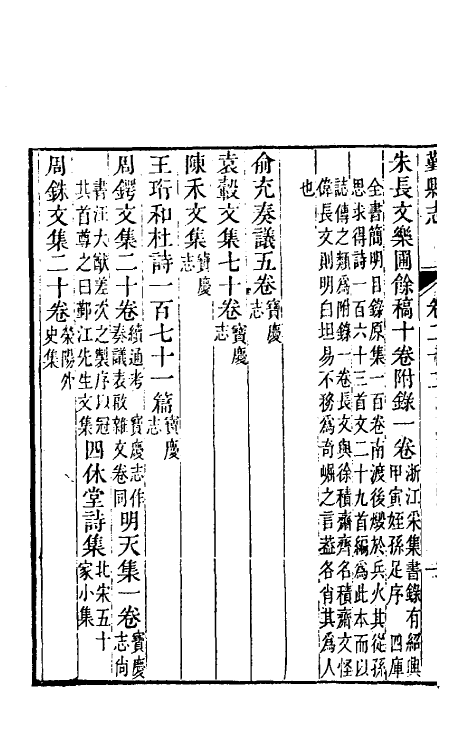 鄞縣志
朱長文樂圃餘稿十卷附錄一卷 浙江采集書錄有紹興甲寅姪孫足序 四庫
全書簡明目錄原集一百卷南渡後燬於兵火其從孫
思求得詩一百六十三首文二十九首編爲此本而以
誌傳之類爲附錄一卷長文與徐積齋齊名積齋文怪
偉長文則明白坦易不務爲奇崛之言葢各肖其爲人
也
俞充奏議五卷 寶慶志
袁轂文集七十卷 寶慶志
陳禾文集 寶慶志
王珩和杜詩一百七十一篇 寶慶志
周鍔文集二十卷 續通考 寶慶志作奏議表啟雜文卷同 明天集一卷 寶慶志尚
書汪大猷差次之製序以冠其首尊之曰鄞江先生文集 四休堂詩集 北宋五十家小集
周銖文集二十卷 滎陽外史集